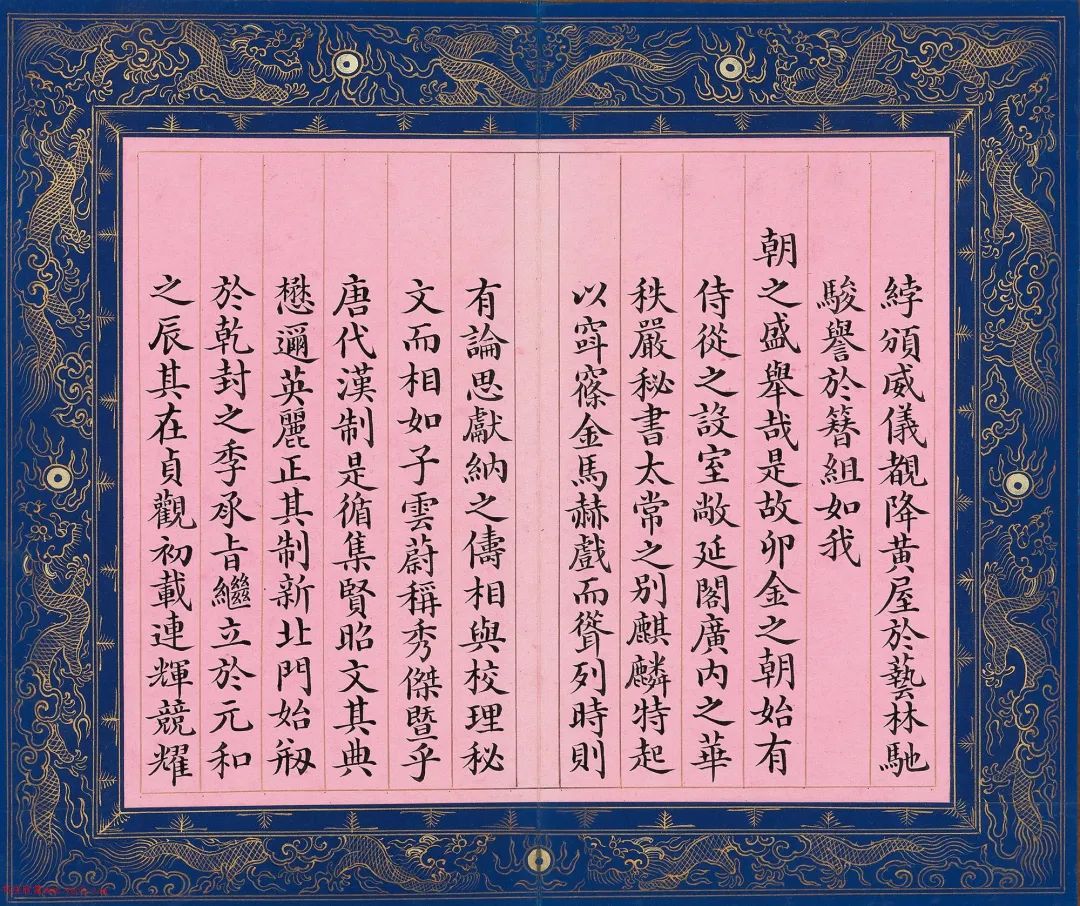 綍頒威儀覩降黃屋於藝林馳
駿譽於簪組如我
朝之盛舉哉是故卯金之朝始有
侍從之設室敞延閣廣內之華
秩嚴秘書太常之別麒麟特起
以窲金馬赫戲而聳列時則
有論思獻納之儔相與校理秘
文而相如子雲蔚稱秀傑暨乎
唐代漢制是循集賢昭文其典
懋邇英麗正其制新北門始刱
於乾封之季承旨繼立於元和
之辰其在貞觀初載連輝競耀